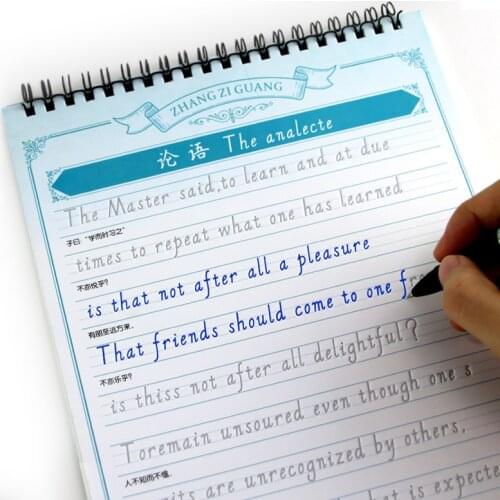 ZHANG ZI GUANG
论语 The analecte
The Master said,to learn and at due
子曰:“学而时习之”
times to repeat what one has learned
不亦悦乎?
is that not after all a pleasure
有朋至远方来,
That friends should come to one
不亦乐乎?
is thiss not after all delightful?
Toremain unsoured even though one s
人不知而不愠,
are unrecognized by others,
is expecte